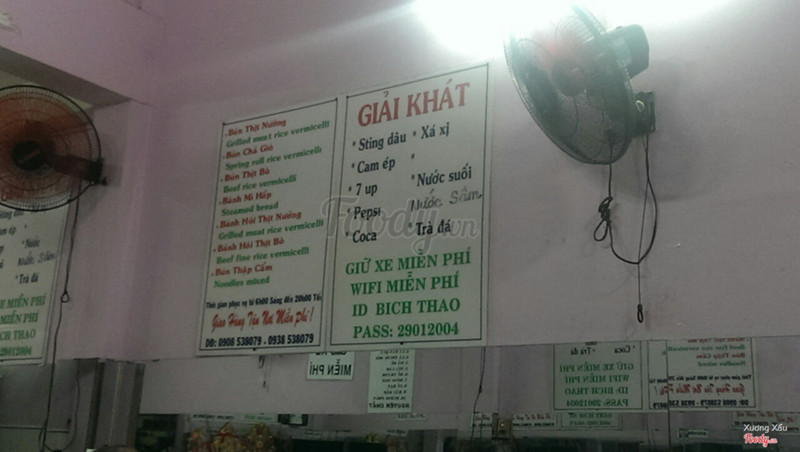 Bún Thịt Nướng
Grilled meat rice vermicelli
Bún Chả Giò
Spring roll rice vermicelli
Bún Thịt Bò
Beef rice vermicelli
Bánh Mì Hấp
Steamed bread
Bánh Hỏi Thịt Nướng
Grilled meat rice vermicelli
Bánh Hỏi Thịt Bò
Beef fine rice vermicelli
Bún Thập Cẩm
Noodles mixed
Thời gian phục vụ từ 6h00 Sáng đến 20h00 Tối
Giao Hàng Tận Nơi Miễn Phí!
DĐ: 0908 538079 - 0938 538079
GIẢI KHÁT
* Sting dâu * Xá xị
* Cam ép *
* 7 up * Nước suối
* Pepsi Nước Sâm
* Coca * Trà đá
GIỮ XE MIỄN PHÍ
WIFI MIỄN PHÍ
ID BICH THAO
PASS: 29012004
Nước
Nước Sâm
* Trà đá
XE MIỄN PHÍ
MIỄN PHÍ
BICH THAO
29012004
MIỄN PHÍ
Coca * Trà đá
GIỮ XE MIỄN PHÍ
WIFI MIỄN PHÍ
ID BICH THAO
PASS: 29012004
Foody.vn
Xương Xẩu
Foody.vn